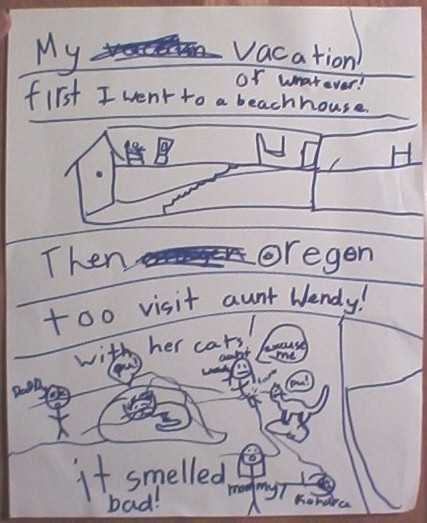 My vacation vacation
or whatever!
first I went to a beachhouse.
Then Oregon
too visit aunt Wendy!
with her cats!
Daddy
pu!
aunt
Wendy
excuse
me
pu!
it smelled
bad!
mommy